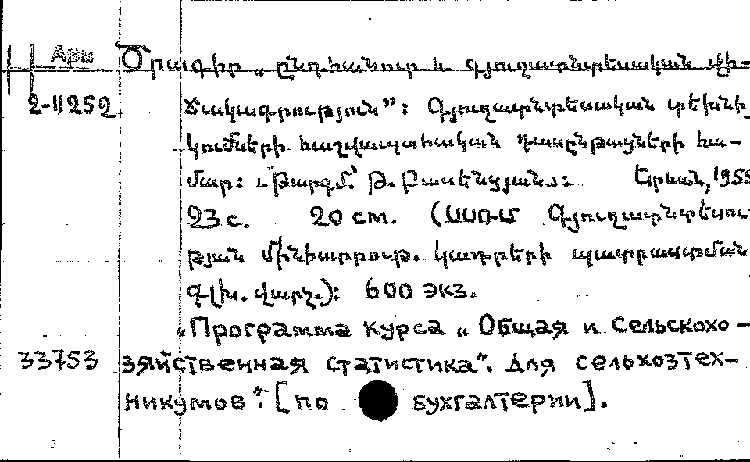 Арм Ծրագիր „ընդհանուր և գյուղատնտեսական վի-
2-11252 ճակագրություն”: Գյուղատնտեսական տեխնի-
կումների հաշվապահական դասընթացների հա-
մար: Թարգմ. Թ. Բասենցյան: Երևան, 1955
23 с. 20 см. (ՍՍՌՄ Գյուղատնտեսու-
թյան մինիստրութ. կադրերի պատրաստման
գլխ. վարչ.): 600 экз.
„Программа курса „Общая и сельскохо-
33753 зяйственная статистика”. Для сельхозтех-
никумов”: [по бухгалтерии].